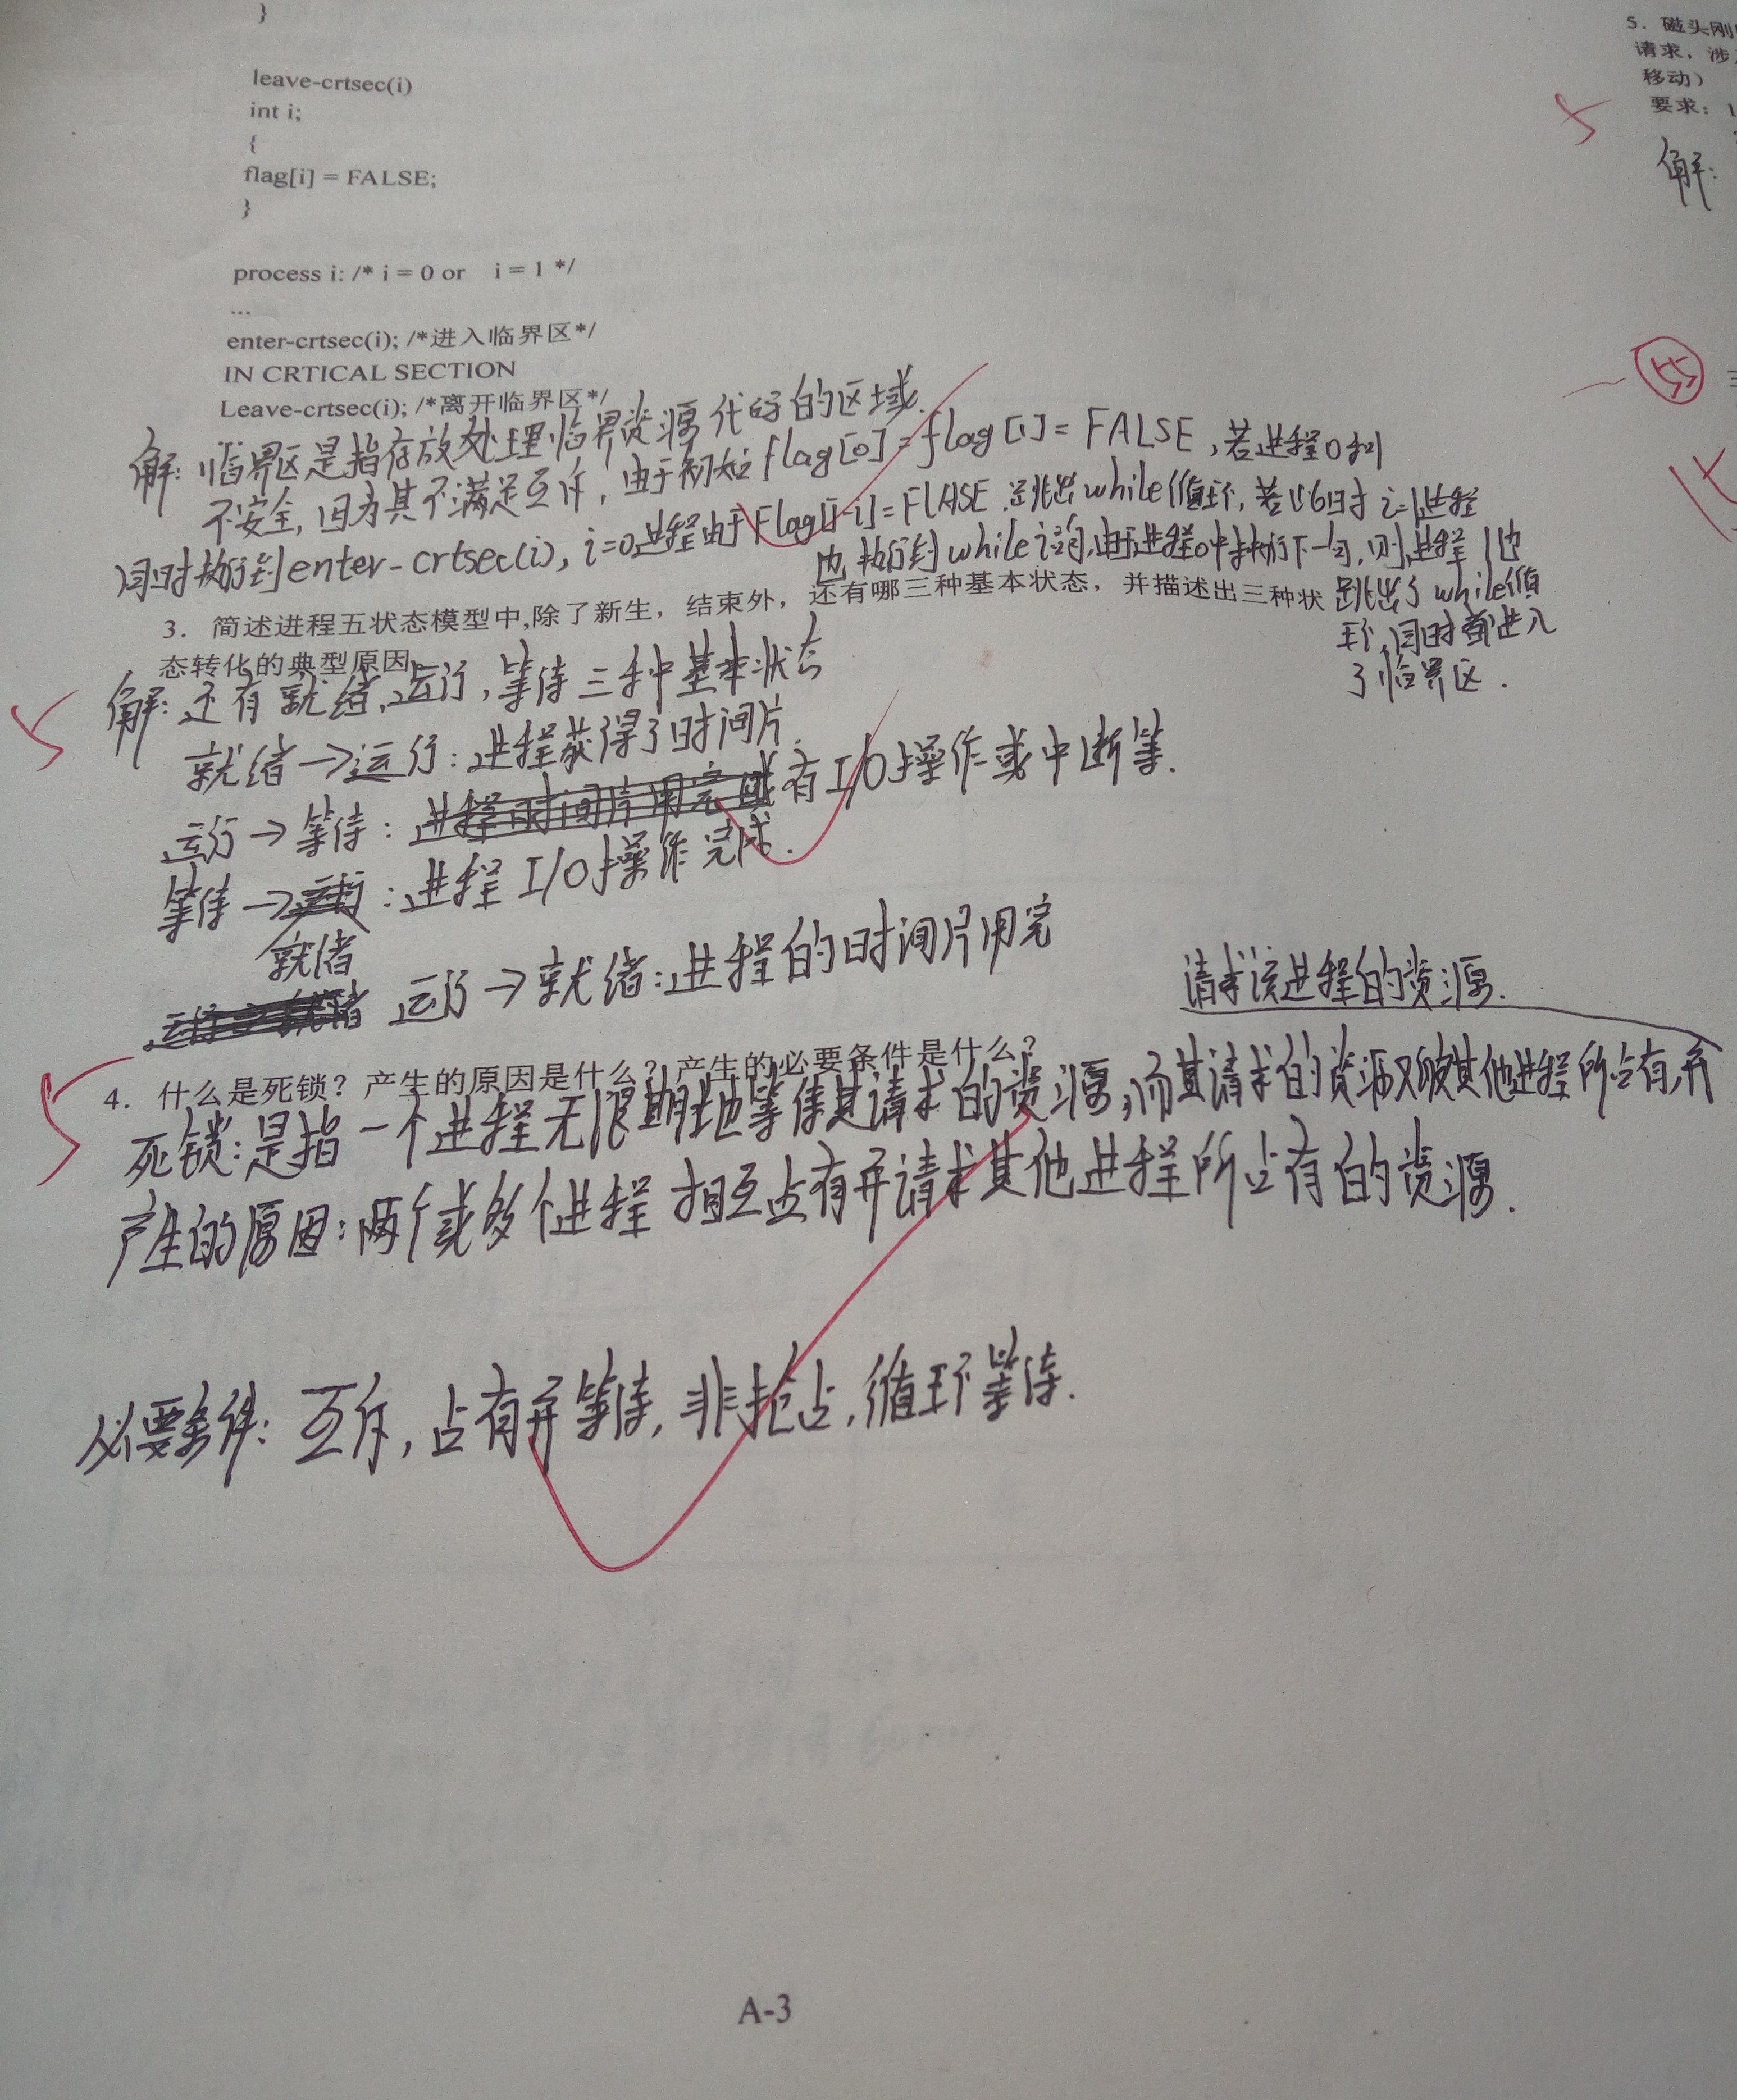 }
leave-crtsec(i)
int i;
{
flag[i] = FALSE;
}
process i: /* i = 0 or i = 1 */
...
enter-crtsec(i); /*进入临界区*/
IN CRTICAL SECTION
Leave-crtsec(i); /*离开临界区*/
解: 临界区是指存放处理临界资源代码的区域.
不安全, 因为其不满足互斥, 由于初始 flag[0] = flag[1] = FALSE, 若进程0和1
同时执行到enter-crtsec(i), i=0进程由于Flag[1-i]=FLASE 跳出while循环, 若此时 i=1进程
也执行到while语句, 由于进程0中未执行下一句, 则进程1也
跳出了while循
环, 同时都进入
了临界区.
3. 简述进程五状态模型中,除了新生，结束外，还有哪三种基本状态，并描述出三种状
态转化的典型原因.
解: 还有就绪, 运行, 等待三种中基本状态
就绪→运行: 进程获得了时间片.
运行→等待: 进程时间片用完或有I/O操作或中断等.
等待→运行: 进程I/O操作完成.
就绪
运行→就绪 运行→就绪: 进程的时间片用完
请求该进程的资源.
4. 什么是死锁？产生的原因是什么？产生的必要条件是什么？
死锁: 是指一个进程无限期地等待其请求的资源, 而其请求的资源又被其他进程所占有, 并
产生的原因: 两个或多个进程相互占有并请求其他进程所占有的资源.
必要条件: 互斥, 占有并等待, 非抢占, 循环等待.
A-3
5. 磁头刚
请求，涉
移动）
要求：1
解: